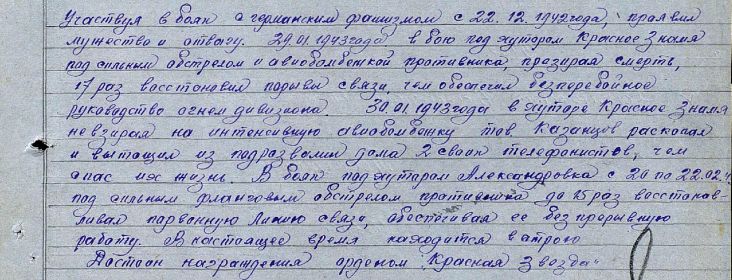 Участвуя в боях с германским фашизмом с 22.12.1942 года, проявил
мужество и отвагу. 29.01.1943 года в бою под хутором Красное Знамя
под сильным обстрелом и авиобомбежкой противника, презирая смерть,
17 раз восстановил порывы связи, чем обеспечил безперебойное
руководство огнем дивизиона. 30.01.1943 года в хуторе Красное Знамя
невзирая на интенсивную авиобомбежку тов. Казанцев раскопал
и вытащил из под развалин дома 2 своих телефонистов, чем
спас их жизнь. В боях под хутором Александровка с 20 по 22.02.
под сильным фланговым обстрелом противника до 15 раз восстанав-
ливал порванную линию связи, обеспечивая ее безпрорывную
работу. В настоящее время находится в строю
Достоин награждения орденом "Красная Звезда"